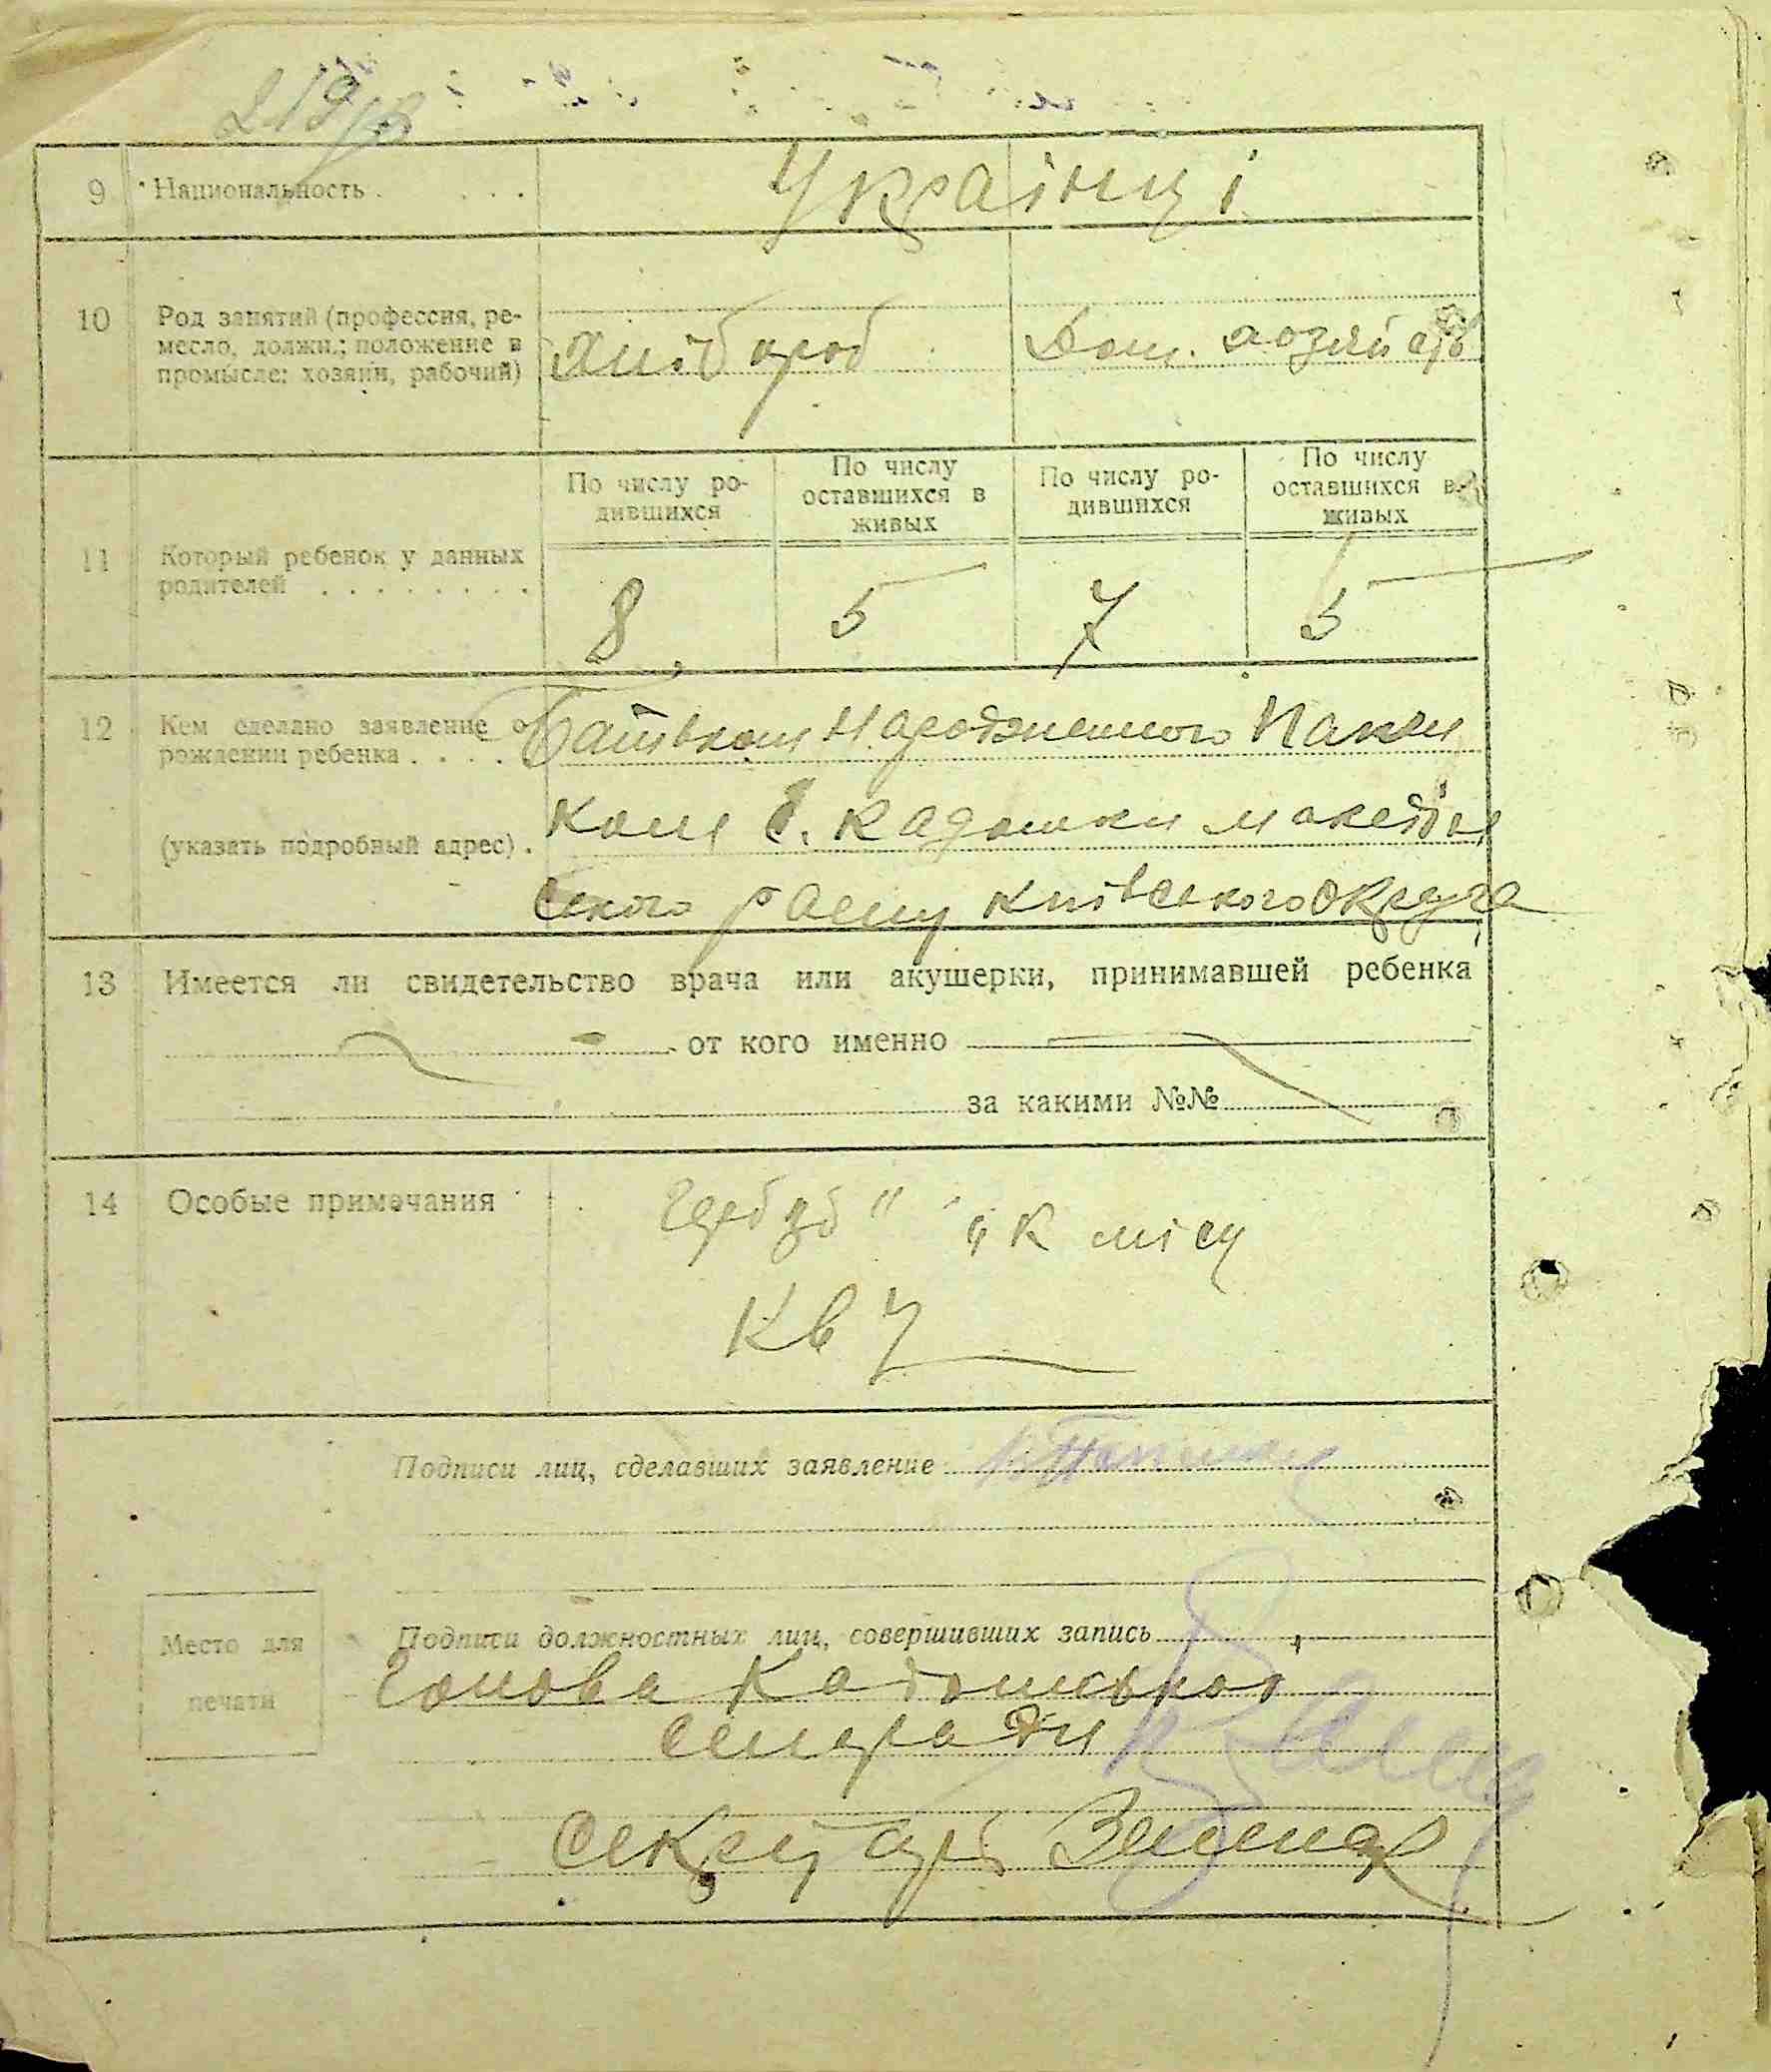 219
9 Национальность . . . . Українці
10 Род занятий (профессия, ре-
месло, должн.; положение в
промысле: хозяин, рабочий)
Хлібороб Дом. хозяйств
По числу ро-
дившихся
По числу
оставшихся в
живых
По числу ро-
дившихся
По числу
оставшихся в
живых
11 Который ребенок у данных
родителей . . . . . . . .
8 5 7 5
12 Кем сделано заявление о
рождении ребенка . . . .
Батьком народженного
(указать подробный адрес) .
ком С. Кадомки
ского раену Київського округа
13 Имеется ли свидетельство врача или акушерки, принимавшей ребенка
от кого именно
за какими №№
14 Особые примечания
Подписи лиц, сделавших заявление
Место для
печати
Подписи должностных лиц, совершивших запись
Голова Кадомської
сельради
секретарь